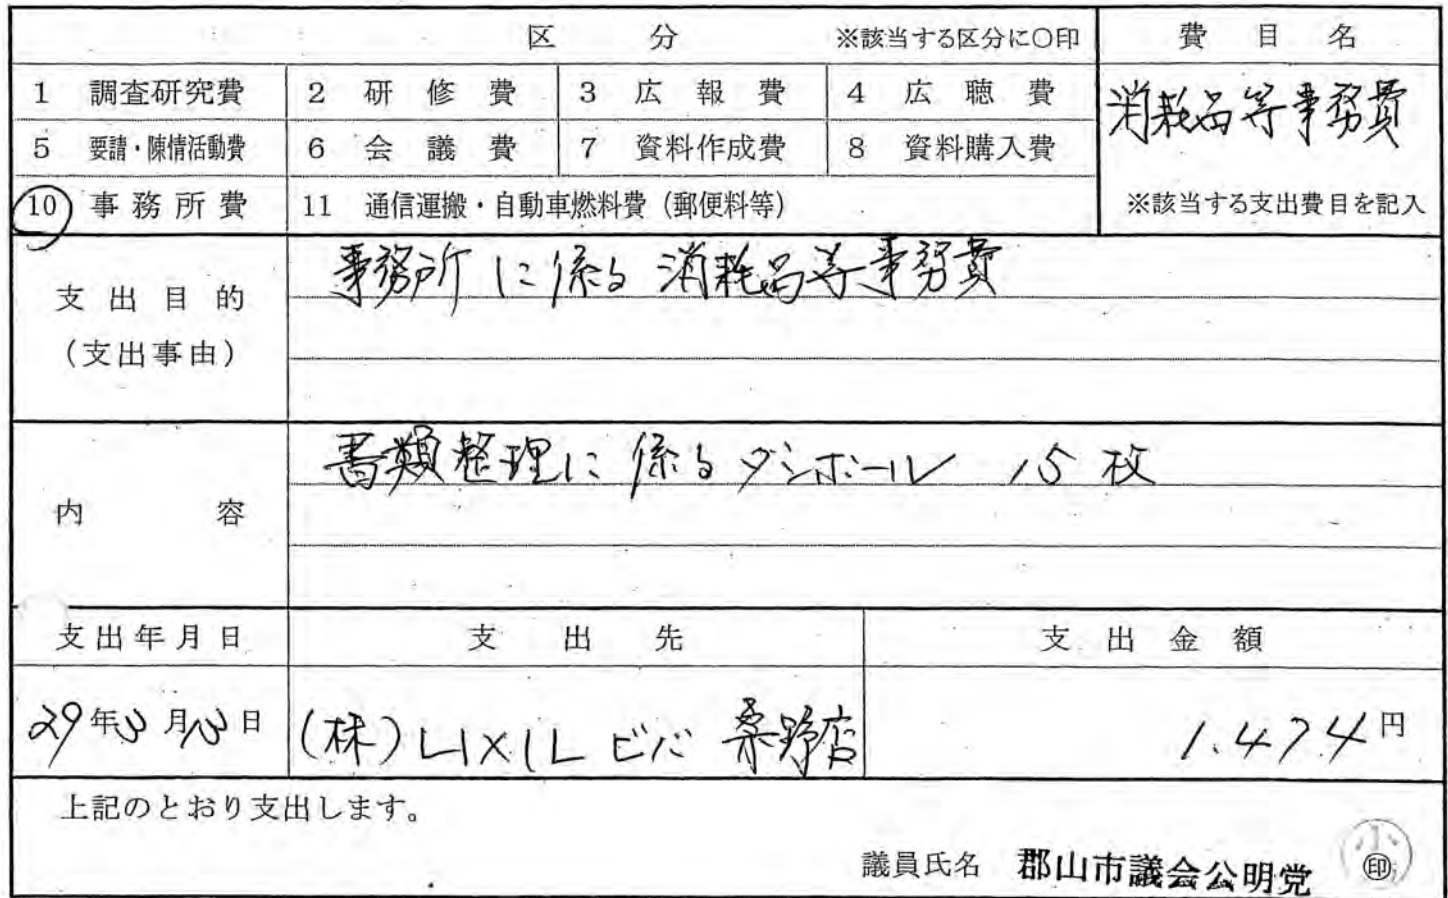 区 分 ※該当する区分に○印 費 目 名
1 調査研究費 2 研 修 費 3 広 報 費 4 広 聴 費
消耗品等事務費
5 要請・陳情活動費 6 会 議 費 7 資料作成費 8 資料購入費
10 事 務 所 費 11 通信運搬・自動車燃料費（郵便料等） ※該当する支出費目を記入
支 出 目 的 事務所に係る消耗品等事務費
（支出事由）
内 容 書類整理に係るダンボール 15枚
支出年月日 支 出 先 支 出 金 額
29年3月13日 (株)LIXILビバ 桑野店 1.474円
上記のとおり支出します。
議員氏名 郡山市議会公明党 印